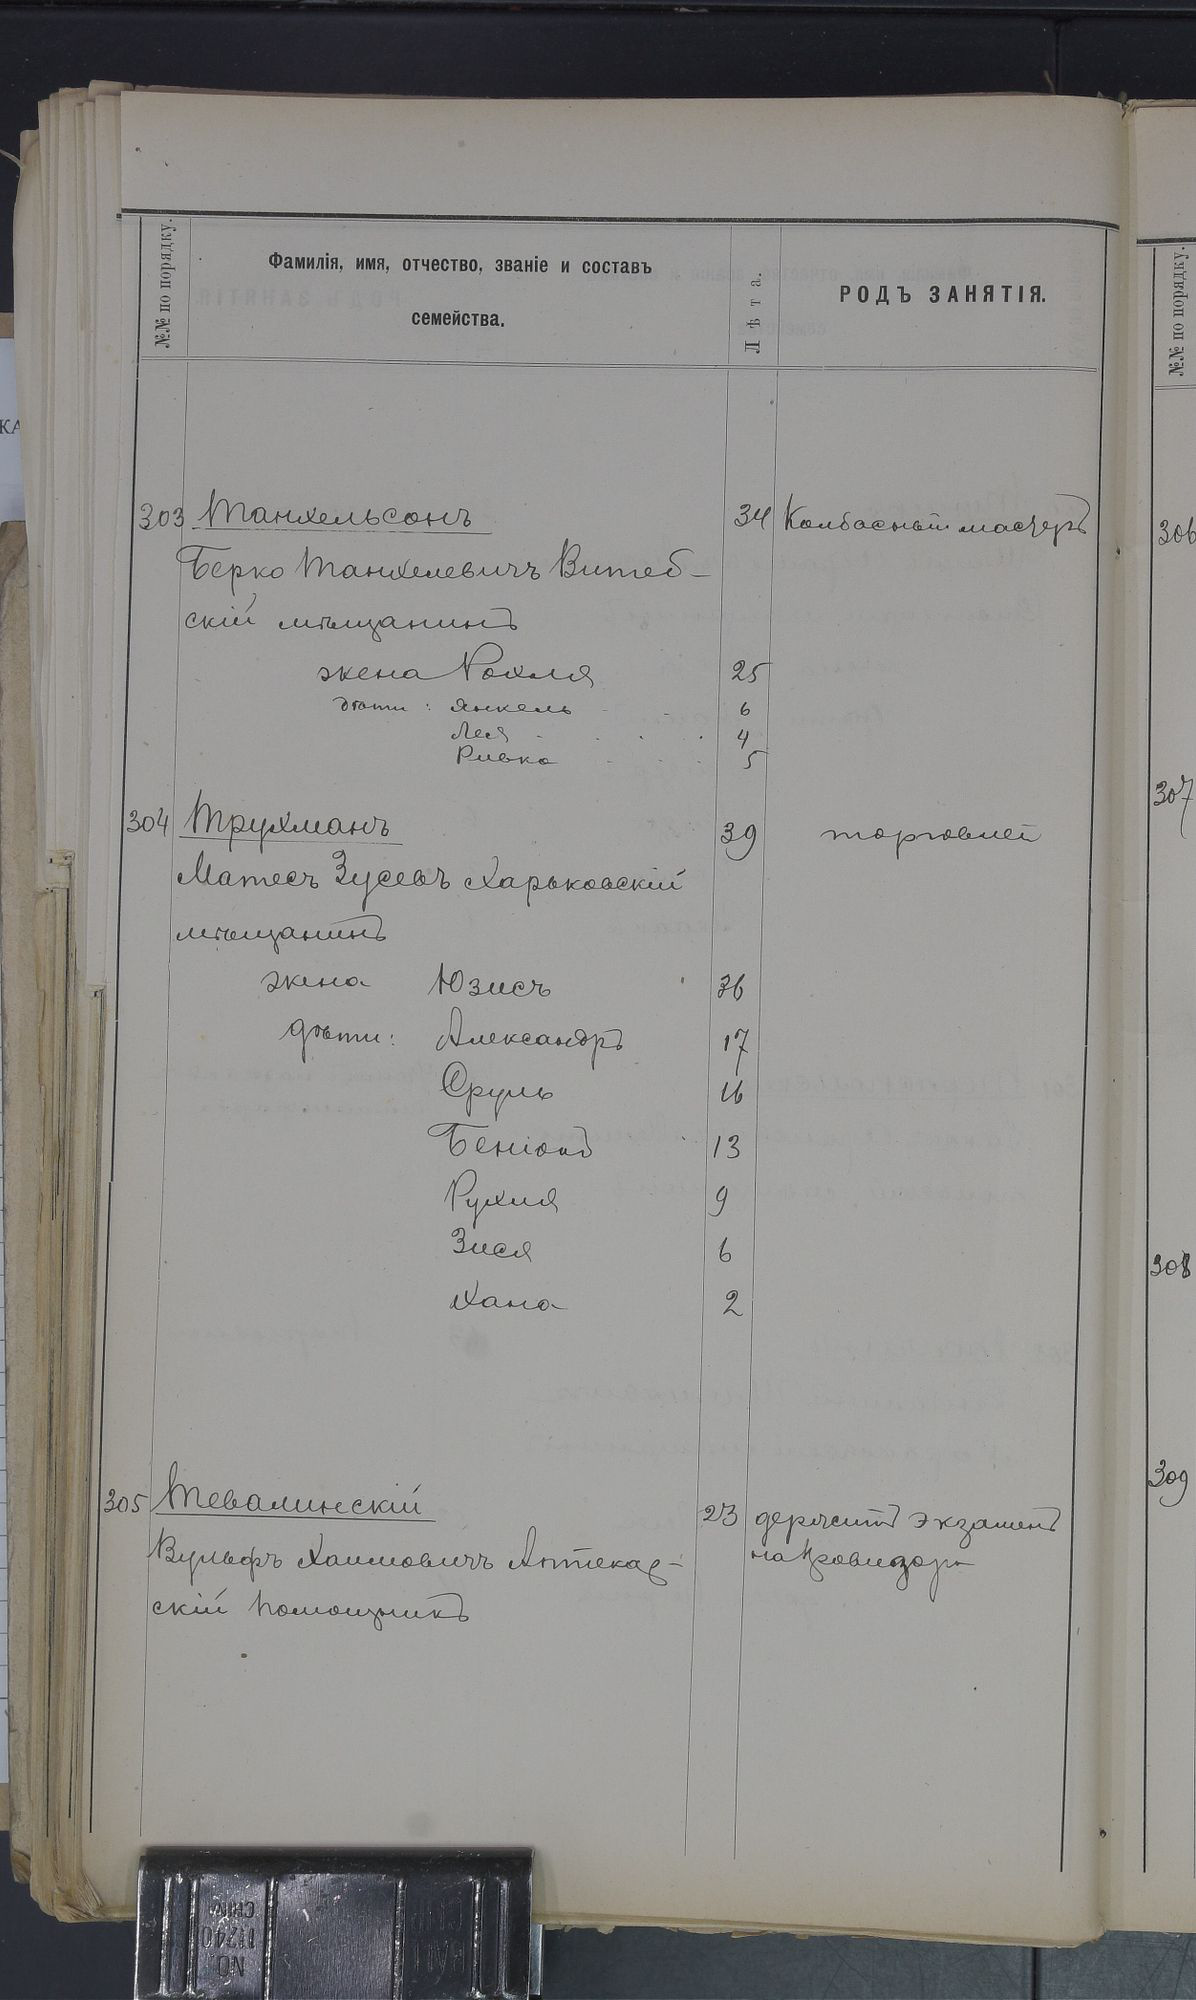 №№ по порядку.
Фамилія, имя, отчество, званіе и составъ
семейства.
Лѣта.
РОДЪ ЗАНЯТІЯ.
№№ по порядку.
303 Танхельсонъ 34 Колбасный мастеръ
Берко Танхелевичъ Витеб-
скій мѣщанинъ
жена Рохля 25
дѣти: Янкель 6
Лея 4
Ривка 5
304 Трухманъ 39 торговлей
Матесъ Зусевъ Харьковскій
мѣщанинъ
жена Юзисъ 36
дѣти: Александръ 17
Сруль 16
13
Рухля 9
Зися 6
Хана 2
305 Тевалинскій 23 держитъ экзаменъ
Вульфъ Хаимовичъ Аптекар- на провизора
скій помощникъ
306
307
308
309
КА
NO.
11240